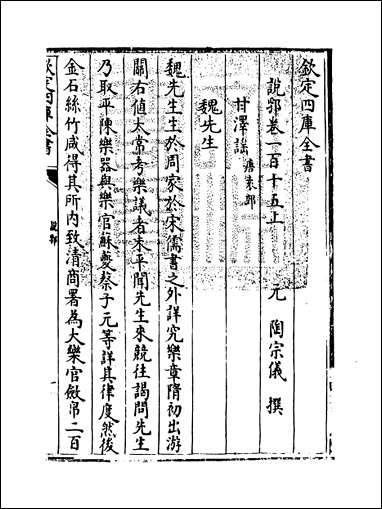 欽定四庫全書
說郛卷一百十五上
元 陶宗儀 撰
甘澤謠 袁郊
魏先生
魏先生生於周家於宋儒書之外詳究樂章隋初出游
關右值太常考樂議者未平聞先生來競往謁問先生
乃取平陳樂器與樂官蘇夔蔡子元等詳其律度然後
金石絲竹咸得其所內致清商署為大樂官斂帛二百
欽定四庫全書
說郛
一